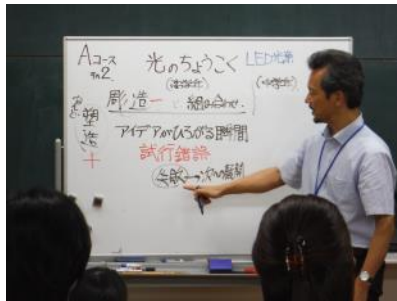 Aコース
その2.
光のちょうこく
LED光源
彫造 ー に 組み合わせ.
塑造
+
アイデアがひろがる瞬間
試行錯誤
失敗→次の展開